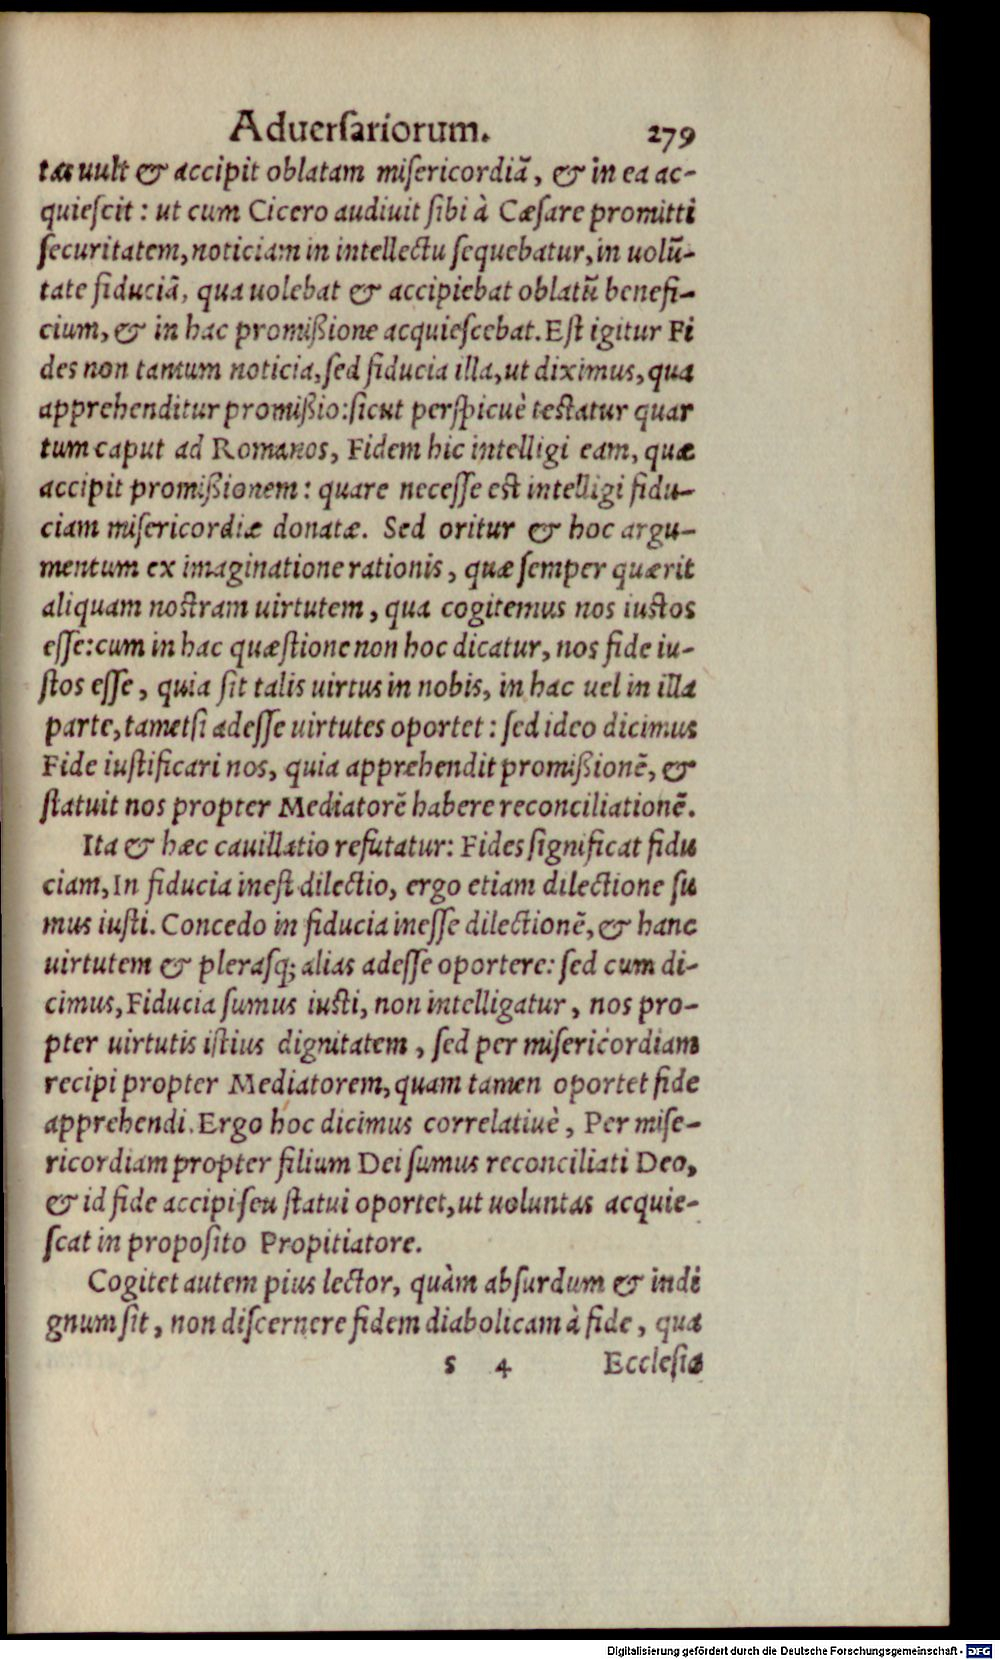 Aduersariorum. 279
tas uult & accipit oblatam misericordiã, & in ea ac-
quiescit: ut cum Cicero audiuit sibi à Cæsare promitti
securitatem, noticiam in intellectu sequebatur, in uolũ-
tate fiduciã, qua uolebat & accipiebat oblatũ benefi-
cium, & in hac promißione acquiescebat. Est igitur Fi
des non tantum noticia, sed fiducia illa, ut diximus, qua
apprehenditur promißio: sicut perspicuè testatur quar
tum caput ad Romanos, Fidem hic intelligi eam, quæ
accipit promißionem: quare necesse est intelligi fidu-
ciam misericordiæ donatæ. Sed oritur & hoc argu-
mentum ex imaginatione rationis, quæ semper quærit
aliquam nostram uirtutem, qua cogitemus nos iustos
esse: cum in hac quæstione non hoc dicatur, nos fide iu-
stos esse, quia sit talis uirtus in nobis, in hac uel in illa
parte, tametsi adesse uirtutes oportet: sed ideo dicimus
Fide iustificari nos, quia apprehendit promißionẽ, &
statuit nos propter Mediatorẽ habere reconciliationẽ.
Ita & hæc cauillatio refutatur: Fides significat fidu
ciam, In fiducia inest dilectio, ergo etiam dilectione su
mus iusti. Concedo in fiducia inesse dilectionẽ, & hanc
uirtutem & plerasq; alias adesse oportere: sed cum di-
cimus, Fiducia sumus iusti, non intelligatur, nos pro-
pter uirtutis istius dignitatem, sed per misericordiam
recipi propter Mediatorem, quam tamen oportet fide
apprehendi. Ergo hoc dicimus correlatiuè, Per mise-
ricordiam propter filium Dei sumus reconciliati Deo,
& id fide accipi seu statui oportet, ut uoluntas acquie-
scat in proposito Propitiatore.
Cogitet autem pius lector, quàm absurdum & indi
gnum sit, non discernere fidem diabolicam à fide, qua
s 4 Ecclesia
Digitalisierung gefördert durch die Deutsche Forschungsgemeinschaft - DFG